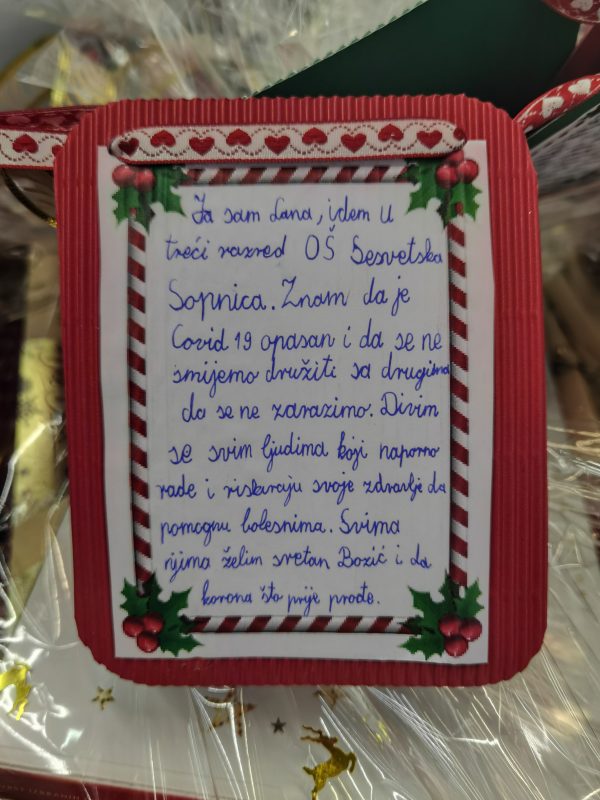 Ja sam Lana, idem u
treći razred OŠ Sesvetska
Sopnica. Znam da je
Covid 19 opasan i da se ne
smijemo družiti sa drugima
da se ne zarazimo. Divim
se svim ljudima koji naporno
rade i riskiraju svoje zdravlje da
pomognu bolesnima. Svima
njima želim sretan Božić i da
korona što prije prođe.